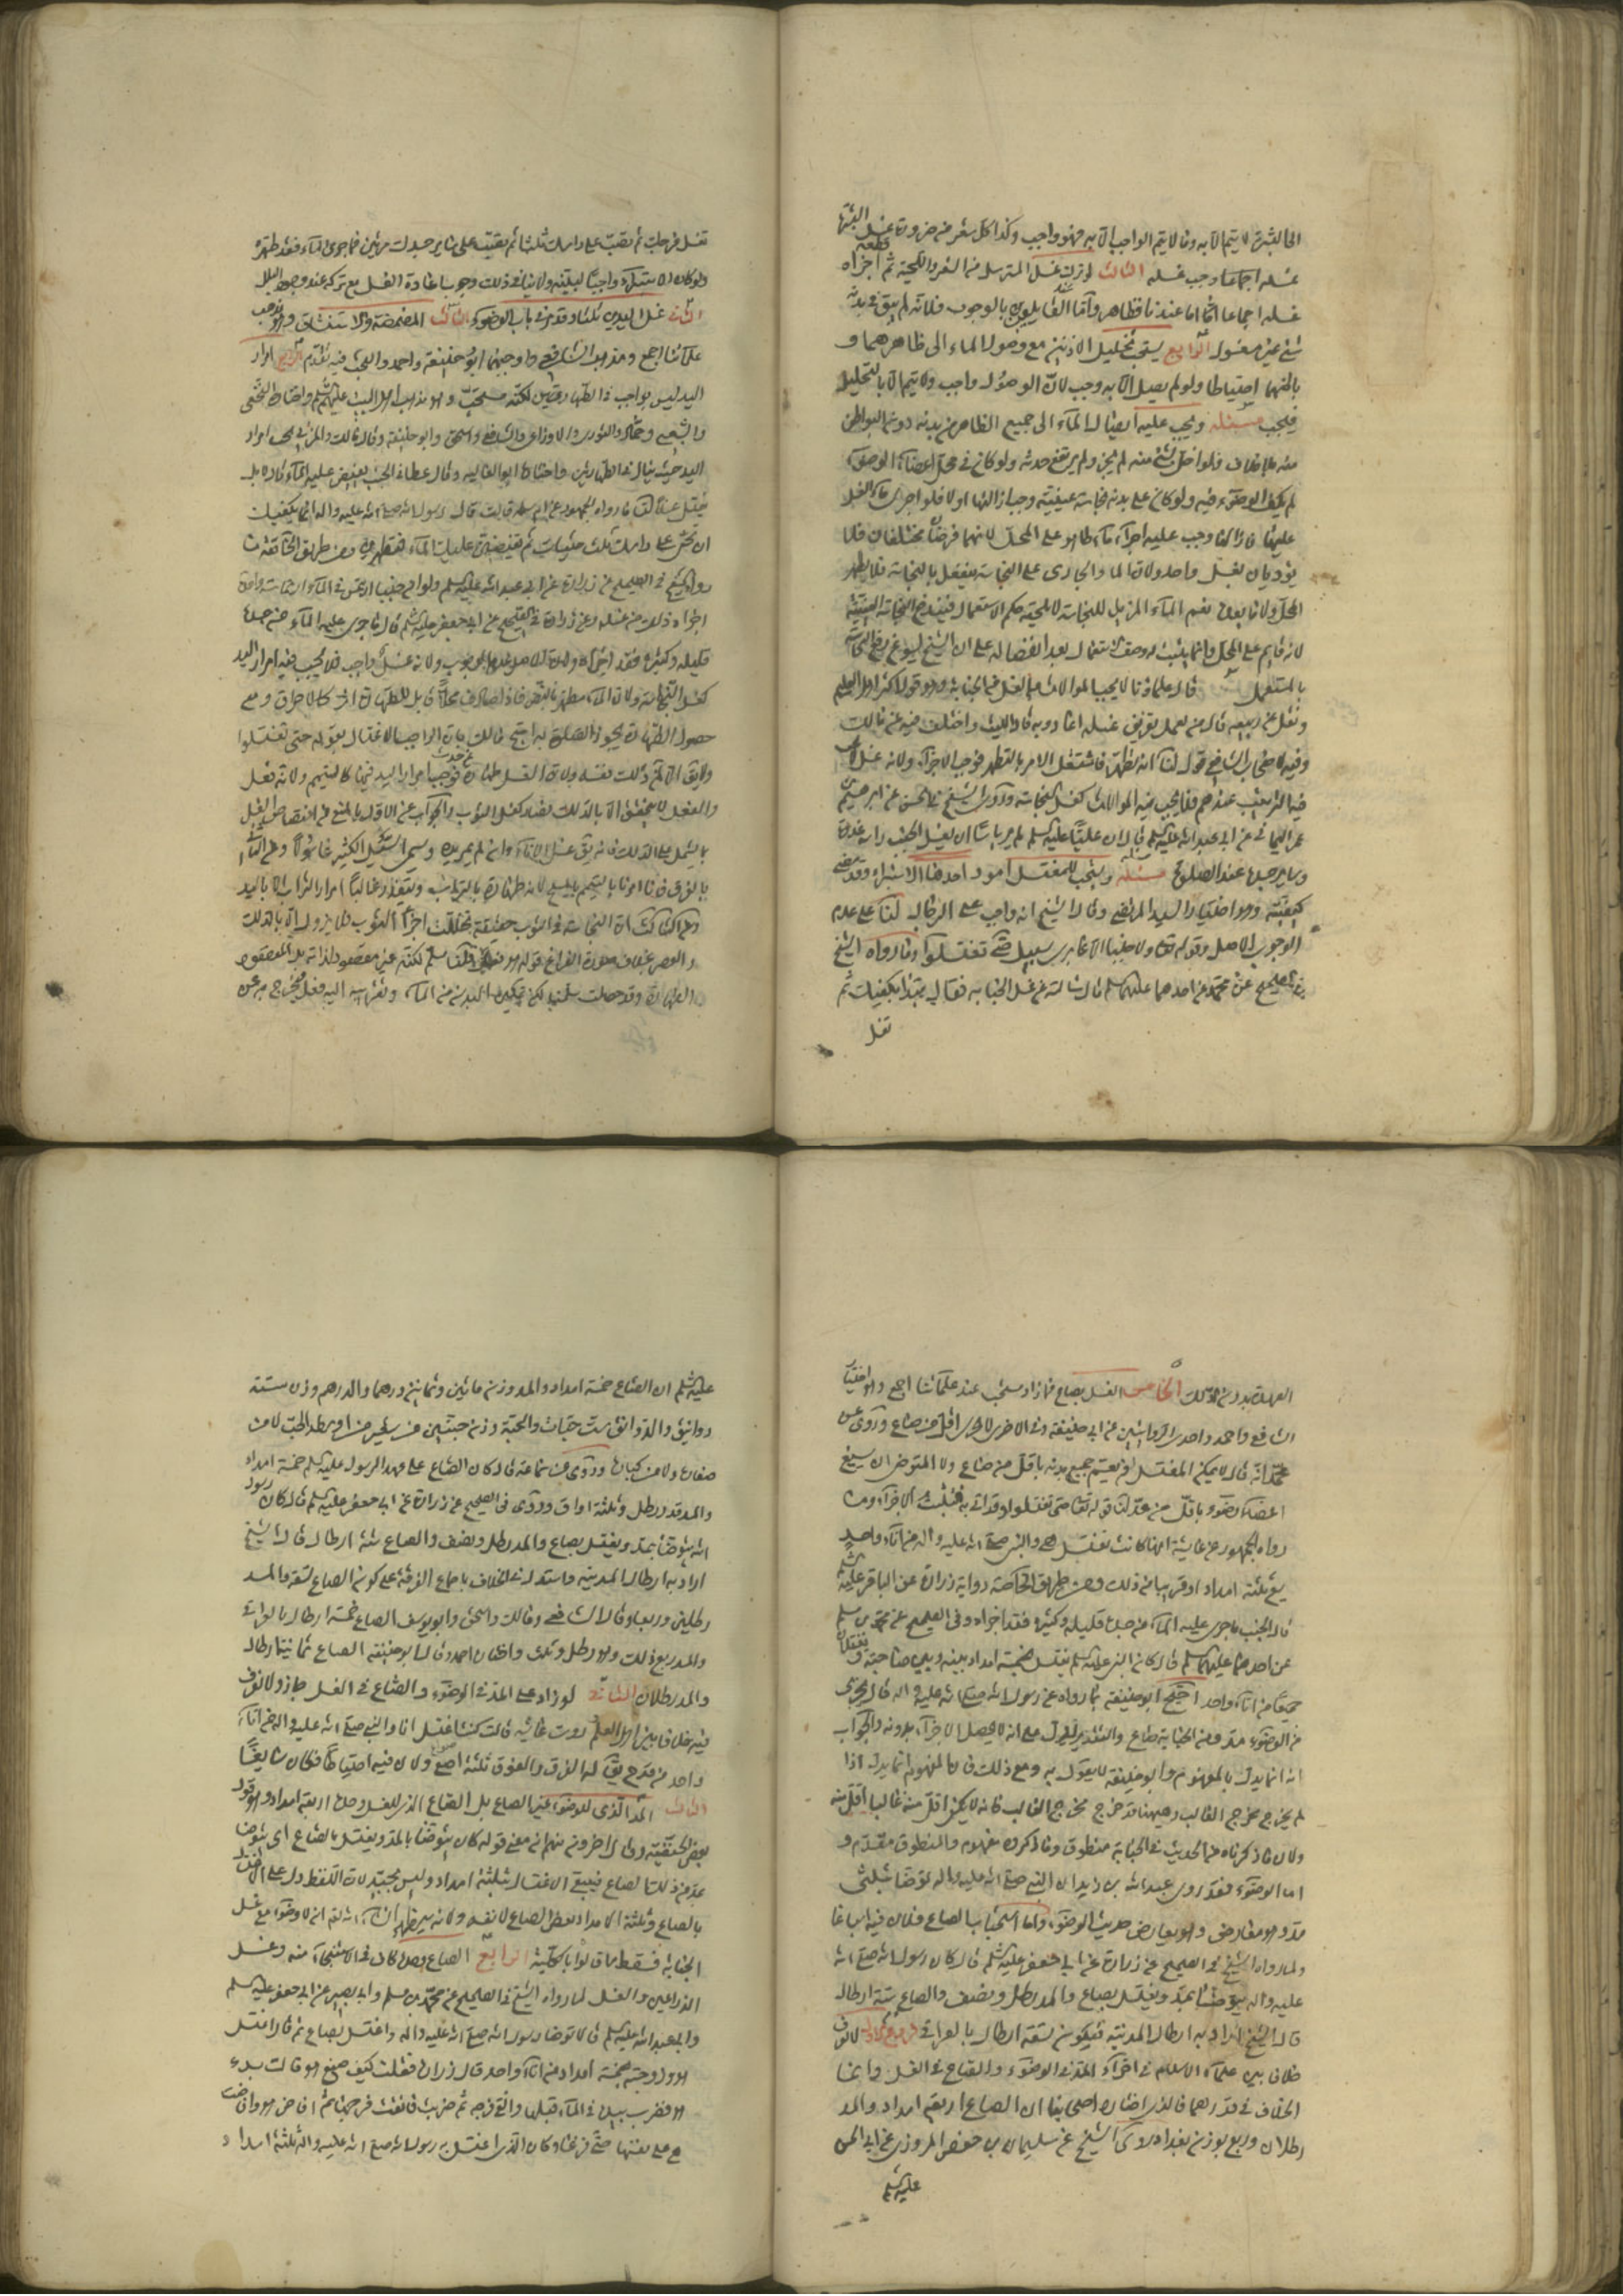 الى البشرة لا يتم الا به وما لا يتم الواجب الا به فهو واجب وكذا كل شعر من ضرورة غسل البشرة
غسله اجماعا وجب غسله الثالث لو ترك غسل المسترسل من الشعر واللحية ثم قطعه اجزاه
غسله اجماعا اما عندنا فظاهر واما عند القايلون بالوجوب فلانه لم يبق في بدنه
شئ غير مغسول الرابع يستحب تخليل الاذنين مع وصول الماء الى ظاهرهما و
باطنهما احتياطا ولو لم يصل الا به وجب لان الوصول واجب ولا يتم الا بالتخليل
فيجب مسئله ويجب عليه ايصال الماء الى جميع الظاهر من بدنه دون البواطن
منه بلا خلاف فلو اخل بشئ منه لم يجز ولم يرتفع حدثه ولو كان في محل اعضاء الوضوء
لم يكف الوضوء فيه ولو كان على بدنه نجاسة عينية وجب ازالتها اولا فلو اجرى ماء الغسل
عليها فازالها وجب عليه اجراء ماء طاهر على المحل لانهما فرضان مختلفان فلا
يؤديان بغسل واحد ولان الماء الجارى على النجاسة ينفعل بالنجاسة فلا يطهر
المحل ولا نعم الماء المزيل للنجاسة لا يلحقه حكم الاستعمال النجاسة العينية
لانه قايم على المحل وانما يثبت له وصف الاستعمال بعد انفصاله على ان الشيخ ليسوغ رفع النجاسة
بالمستعمل قال علماؤنا لا يجب الموالاة في الغسل من الجنابة وهو قول اكثر اهل العلم
ونقل عن ربيعه قال من تعمد تفريق غسله اعاد وبه قال الليث واختلف فيه عن مالك
وفيه لاصحاب الشافعي قول لنا انه تطهر فاشتغل الامر بالتطهر فوجب الاجزاء ولانه غسل لا يجب
فيه الترتيب عندهم فلا يجب فيه الموالاة كغسل النجاسة وروى الشيخ في الحسن عن ابرهيم بن
عمر اليماني عن ابى عبد الله عليه السلم قال ان عليا عليه السلم لم ير باسا ان يغسل الجنب راسه غدوة
وساير جسده عند الصلوة مسئله ويستحب للمغتسل امور احدها الاستبراء وقد مضى
كيفيته وهو اختيار السيد المرتضى وقال الشيخ انه واجب على الرجال لنا على عدم
الوجوب الاصل وقوله تعالى ولا جنبا الا عابرى سبيل حتى تغتسلوا وما رواه الشيخ
في الصحيح عن محمد عن احدهما عليهما السلم قال سالته عن غسل الجنابة فقال يبتدا بكفيك ثم
تغسل
تغسل فرجك ثم تصب على راسك ثلثا ثم تصب على ساير جسدك مرتين فما جرى الماء فقد طهره
ولو كان الاستبراء واجبا لبينه ولا ينافي ذلك وجوب اعادة الغسل مع تركه عند وجود البلل
الثانى غسل اليدين ثلثا وقد مر في باب الوضوء الثالث المضمضة والاستنشاق وهو مذهب
علمائنا اجمع ومذهب الشافعي واوجبهما ابو حنيفة واحمد والبحث فيه تقدم الرابع امرار
اليد ليس بواجب في الطهارتين لكنه مستحب وهو مذهب اهل البيت عليهم السلم واختاره النخعي
والشعبي وحماد والثورى والاوزاعى والشافعي واسحق وابو حنيفة وقال مالك والمزني يجب امرار
اليد حيث ينال في الطهارتين واختاره ابو العاليه وقال عطا في الجنب يفيض عليه الماء قال لا بل
يغتسل غسلا لنا ما رواه الجمهور عن ام سلمه قالت قال رسول الله صلى الله عليه واله انما يكفيك
ان تحثى على راسك ثلث حثيات ثم تفيضين عليك الماء فتطهرين ومن طريق الخاصة ما
رواه الشيخ في الصحيح عن زرارة عن ابى عبد الله عليه السلم ولو ان جنبا ارتمس في الماء ارتماسة واحدة
اجزاه ذلك من غسله وعن زرارة في الصحيح عن ابى جعفر عليه السلم قال ما جرى عليه الماء من جسده
قليله وكثيره فقد اجزاه ولان الاصل عدم الوجوب ولانه غسل واجب فلا يجب فيه امرار اليد
كغسل النجاسة ولان الماء مطهر بالنص فاذا صادف محلا قابل للطهارة اثر كالاحراق ومع
حصول الطهارة يجوز الصلوة به احتج مالك بان الواجب الاغتسال بقوله حتى تغتسلوا
ولا يقال لمن ذلك نفسه ولان الغسل طهارة عن حدث فوجب امرار اليد فيها كالتيمم ولانه فعل
والفعل لا يتحقق الا بالدلك فصار كغسل الثوب والجواب عن الاول بالمنع من اختصاص الغسل
بالمشتمل على الدلك فانه يقال غسل الاناء وان لم يمر يده ويسمى السيل الكثير غاسولا وعن الثاني
بالفرق فانا امرنا بالتيمم بالمسح لانه طهارة بالتراب ويتعذر غالبا امرار التراب الا باليد
وعن الثالث ان النجاسة في الثوب حقيقة تخللت اجزاء الثوب فلا يزول الا بالدلك
والعصر بخلاف صورة النزاع قوله هو فعل قلنا مسلم لكنه غير مقصود لذاته بل المقصود
الطهارة وقد حصلت سلمنا لكن تمكين البدن من الماء وتقريبه اليه فعل فيخرج به عن
العهدة بدون الدلك الخامس الغسل بصاع فما زاد مستحب عند علمائنا اجمع وهو اختيار
الشافعي واحمد واحدى الروايتين عن ابى حنيفة وفي الاخرى لا يجزى اقل من صاع وروى عن
محمد انه قال لا يمكن المغتسل ان يعم جميع بدنه باقل من صاع ولا المتوضى ان يسبغ
اعضاء وضوءه باقل من مد لنا قوله تعالى حتى تغتسلوا وقد اتى به فيثبت الاجزاء وما
رواه الجمهور عن عايشة انها كانت تغتسل هي والنبي صلى الله عليه واله من اناء واحد
يسع ثلثة امداد او قريبا من ذلك ومن طريق الخاصة رواية زرارة عن الباقر عليه السلم
قال الجنب ما جرى عليه الماء من جسده قليله وكثيره فقد اجزاه وفي الصحيح عن محمد بن مسلم
عن احدهما عليهما السلم قال كان النبي عليه السلم يغتسل بخمسة امداد بينه وبين صاحبته ويغتسلان
جميعا من اناء واحد احتج ابو حنيفة بما رواه عن رسول الله صلى الله عليه واله قال يجزى
من الوضوء مد ومن الجنابة صاع والتقدير يدل على انه لا يحصل الاجزاء بدونه والجواب
انه انما يدل بالمفهوم وابو حنيفة لا يقول به ومع ذلك فان المفهوم انما يدل اذا
لم يخرج مخرج الغالب وههنا قد خرج مخرج الغالب فانه لا يكفي اقل منه غالبا اقل منه
ولان ما ذكرناه من الحديث في الجنابة منطوق وما ذكروه مفهوم والمنطوق مقدم و
اما الوضوء فقد روى عبد الله بن زيد ان النبي صلى الله عليه واله توضا بثلثى
مد وهو معارض وهو يعارض حديث الوضوء واما استحباب الصاع فلان فيه اسباغا
ولما رواه الشيخ في الصحيح عن زرارة عن ابى جعفر عليه السلم قال كان رسول الله صلى الله
عليه واله يتوضا بمد ويغتسل بصاع والمد رطل ونصف والصاع ستة ارطال
قال الشيخ اراد به ارطال المدينة فيكون تسعة ارطال بالعراقى فروع الاول لا نعرف
خلافا بين علماء الاسلام في اجزاء المد في الوضوء والصاع في الغسل وانما
الخلاف في قدرهما فالذى اختاره اصحابنا ان الصاع اربعة امداد والمد
رطلان وربع بوزن بغداد روى الشيخ عن سليمان بن حفص المروزى عن ابى الحسن
عليه السلم
عليه السلم ان الصاع خمسة امداد والمد وزن مائتين وثمانين درهما والدرهم وزن ستة
دوانيق والدوانق ست حبات والحبة وزن حبتين من شعير من اوسط الحب لا من
صغاره ولا من كباره وروى عن سماعة قال كان الصاع على عهد الرسول عليه السلم خمسة امداد
والمد قدر رطل وثلثة اواق وروى في الصحيح عن زرارة عن ابى جعفر عليه السلم قال كان رسول
الله يتوضا بمد ويغتسل بصاع والمد رطل ونصف والصاع ستة ارطال قال الشيخ
اراد به ارطال المدينة واستدل في الخلاف باجماع الفرقة على كون الصاع تسعة والمد
رطلين وربعا وقال الشافعي ومالك واسحق وابو يوسف الصاع خمسة ارطال بالعراقى
والمد ربع ذلك وهو رطل وثلث واختاره احمد وقال ابو حنيفة الصاع ثمانية ارطال
والمد رطلان الثانى لو زاد على المد في الوضوء والصاع في الغسل جاز ولا نعرف
فيه خلافا بين اهل العلم روت عايشه قالت كنت اغتسل انا والنبي صلى الله عليه واله من اناء
واحد من قدح يقال له الفرق والفرق ثلثة اصع ولان فيه احتياطا فكان سايغا
الثالث المد الذى للوضوء غير الصاع بل الصاع الذى للغسل وحده اربعة امداد وهو قول
بعض الحنفية وقال اخرون منهم ان معنى قوله كان يتوضا بالمد ويغتسل بالصاع اى يتوضا
بمد من ذلك الصاع فيبقى الاغتسال بثلثة امداد وليس بجيد لان اللفظ دل على الاغتسال
بالصاع وثلثة الامداد بعض الصاع لا نفسه ولانه سيظهر ان شاء الله تعالى انه لا وضوء مع غسل
الجنابة فسقط ما قالوا بالكلية الرابع الصاع وان كان في الاستنجاء منه وغسل
الذراعين والغسل لما رواه الشيخ في الصحيح عن محمد بن مسلم وابى بصير عن ابى جعفر عليه السلم
وابى عبد الله عليه السلم قالا توضا رسول الله صلى الله عليه واله واغتسل بصاع ثم قال اغتسل
هو وزوجته بخمسة امداد من اناء واحد قال زرارة فقلت كيف صنع هو قال بدء
هو فضرب بيده في الماء قبلها وانقى فرجه ثم ضربت فانقت فرجها ثم افاض هو وافاضت
هي على نفسها حتى فرغا وكان الذى اغتسل به رسول الله صلى الله عليه واله ثلثة امداد